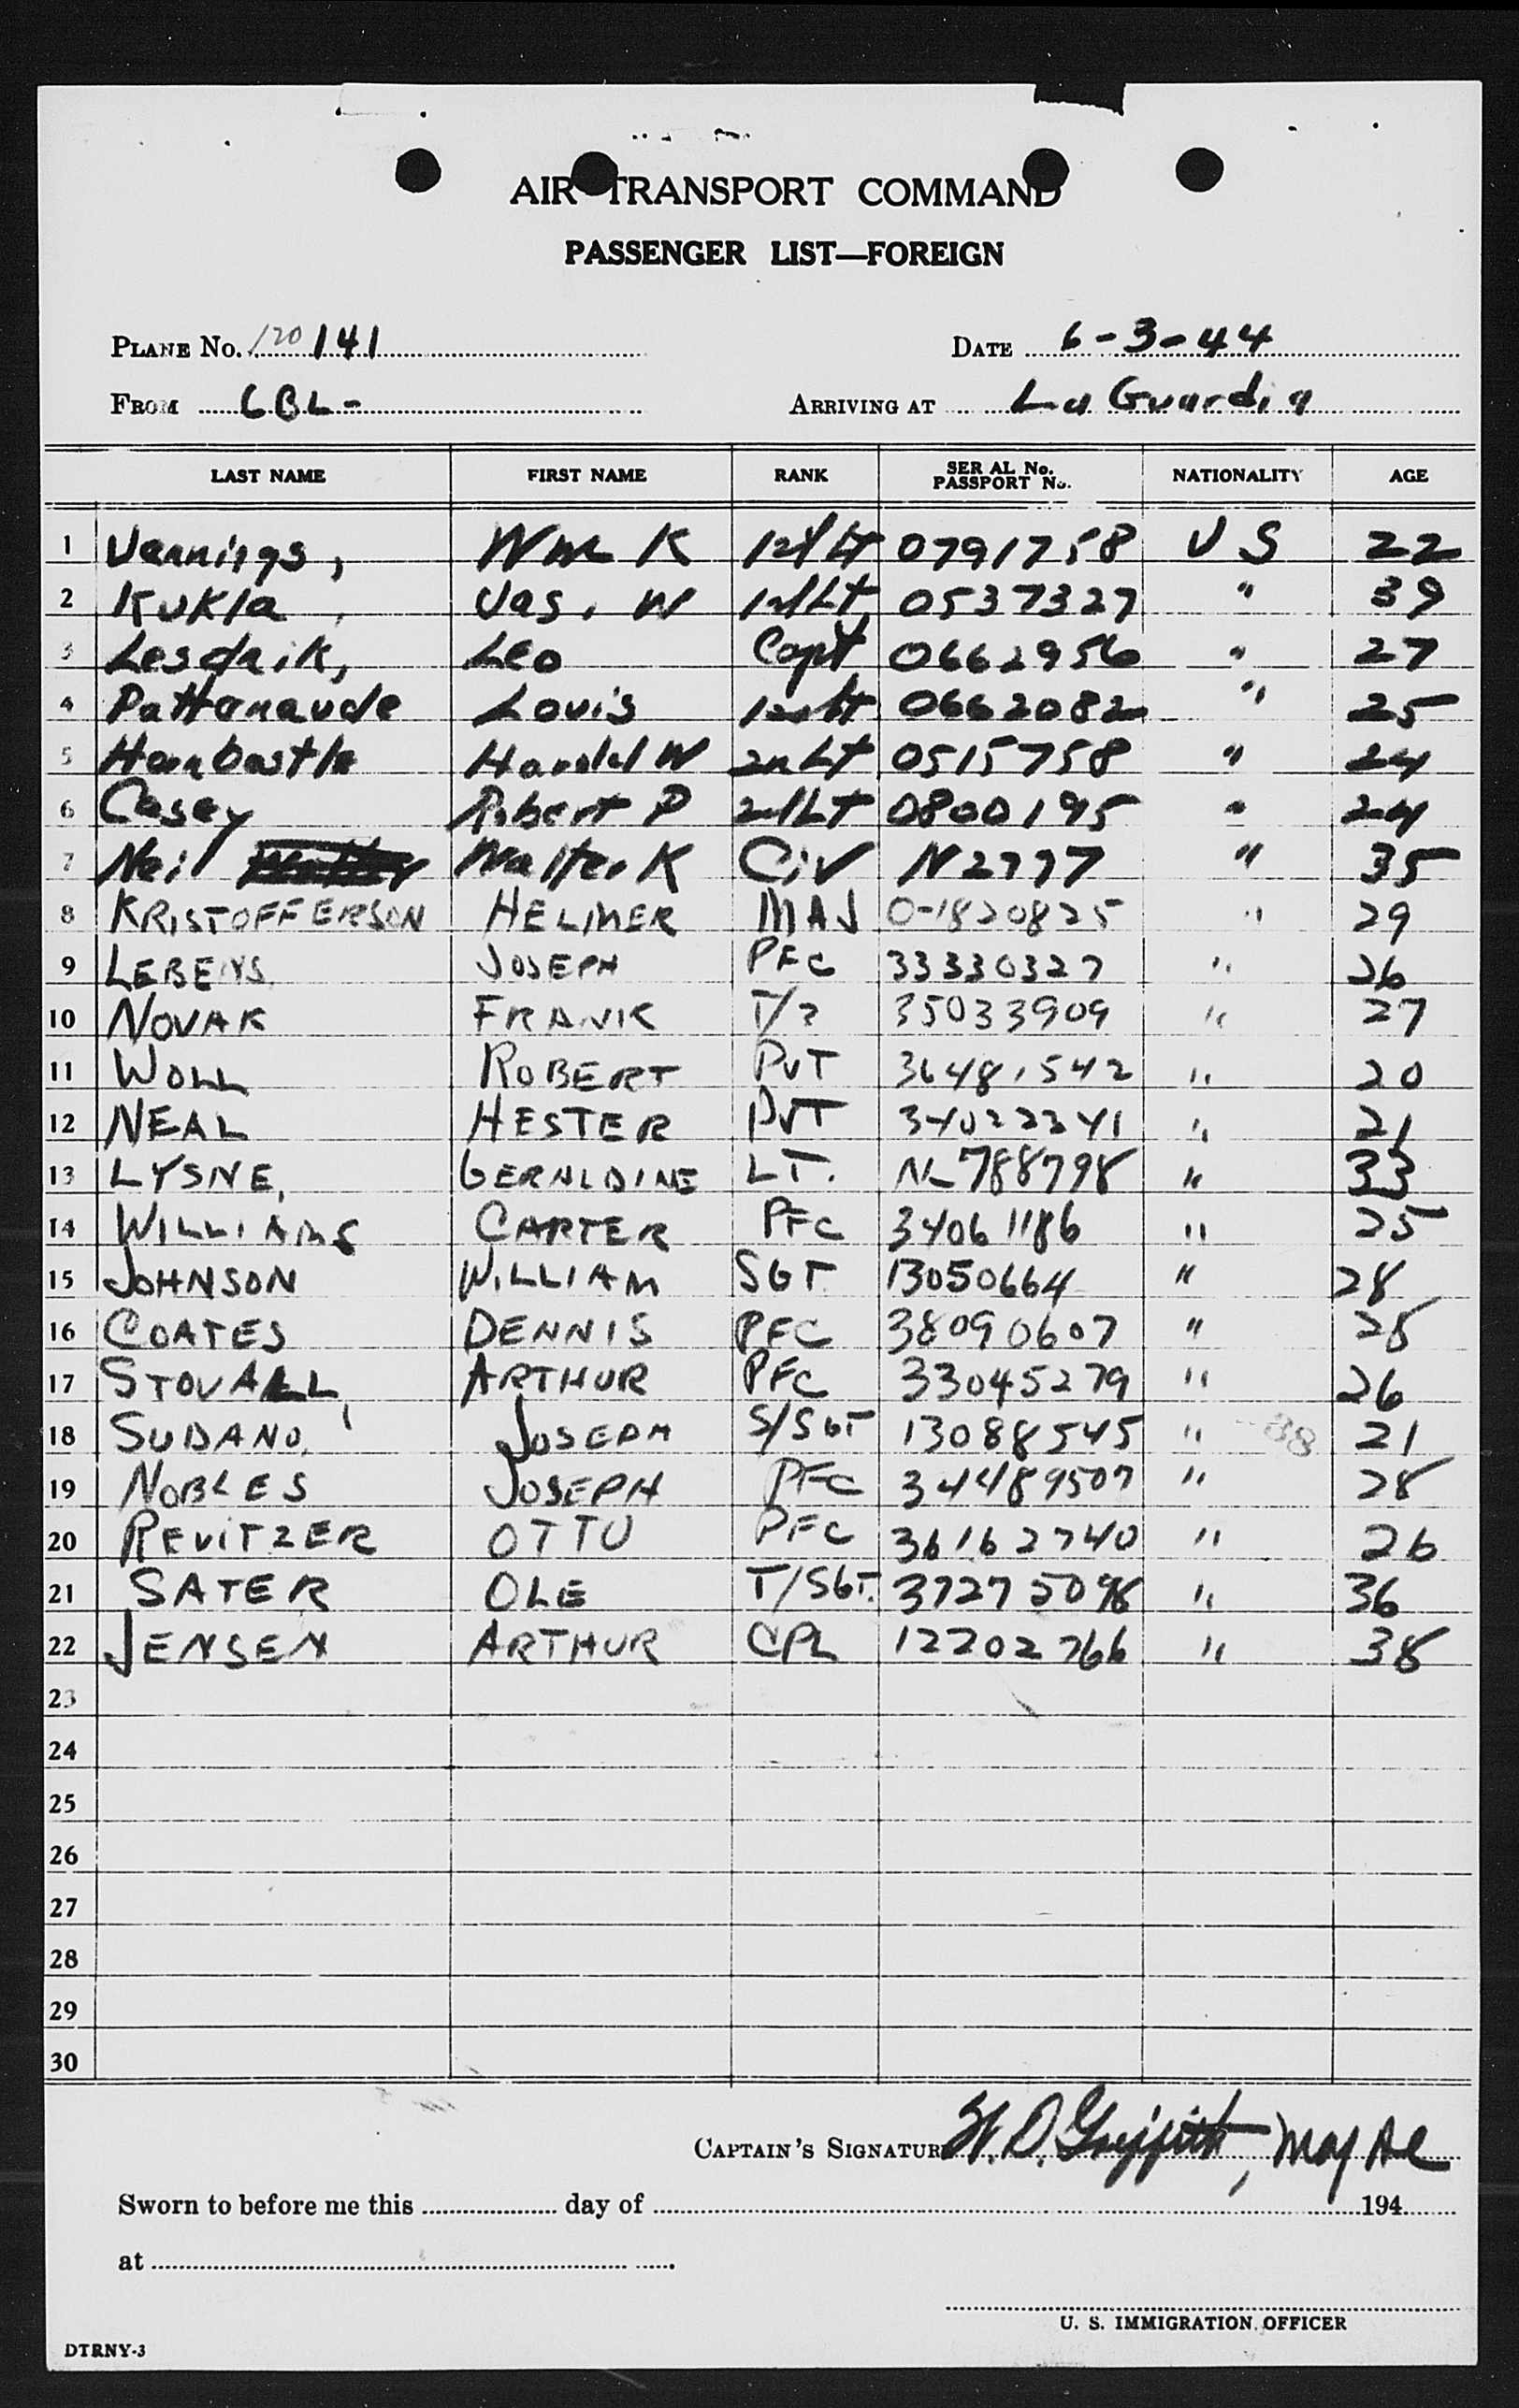 AIR TRANSPORT COMMAND
PASSENGER LIST—FOREIGN
PLANE No. 120 141 DATE 6-3-44
FROM CBL- ARRIVING AT La Guardia
LAST NAME FIRST NAME RANK SERIAL No. PASSPORT No. NATIONALITY AGE
1 Jennings, Wm K 1st Lt 0791758 US 22
2 Kukla, Jas. W 1st Lt 0537327 " 39
3 Leo Capt 0662956 " 27
4 Pattenaude Louis 0662082 " 25
5 Harold W 2n Lt 0515758 " 24
6 Casey Robert P 2d Lt 0800195 " 24
7 Neil Walter K Civ N2777 " 35
8 KRISTOFFERSON HELMER MAJ 0-1820825 " 29
9 LEBENS JOSEPH PFC 33330327 " 26
10 NOVAK FRANK T/? 35033909 " 27
11 WOLL ROBERT PVT 36481542 " 20
12 NEAL HESTER PVT 34022341 " 21
13 LYSNE, GERALDINE LT. N-788798 " 33
14 WILLIAMS CARTER PFC 34061186 " 25
15 JOHNSON WILLIAM SGT 13050664 " 28
16 COATES DENNIS PFC 38090607 " 28
17 STOVALL, ARTHUR PFC 33045279 " 26
18 SUDANO, JOSEPH S/SGT 13088545 " 38 21
19 NOBLES JOSEPH PFC 34489507 " 28
20 REVITZER OTTO PFC 36162740 " 26
21 SATER OLE T/SGT. 37275098 " 36
22 JENSEN ARTHUR CPL 12202766 " 38
23
24
25
26
27
28
29
30
CAPTAIN'S SIGNATURE H. D. Griffith, Maj AC
Sworn to before me this day of 194
at
U. S. IMMIGRATION OFFICER
DTRNY-3